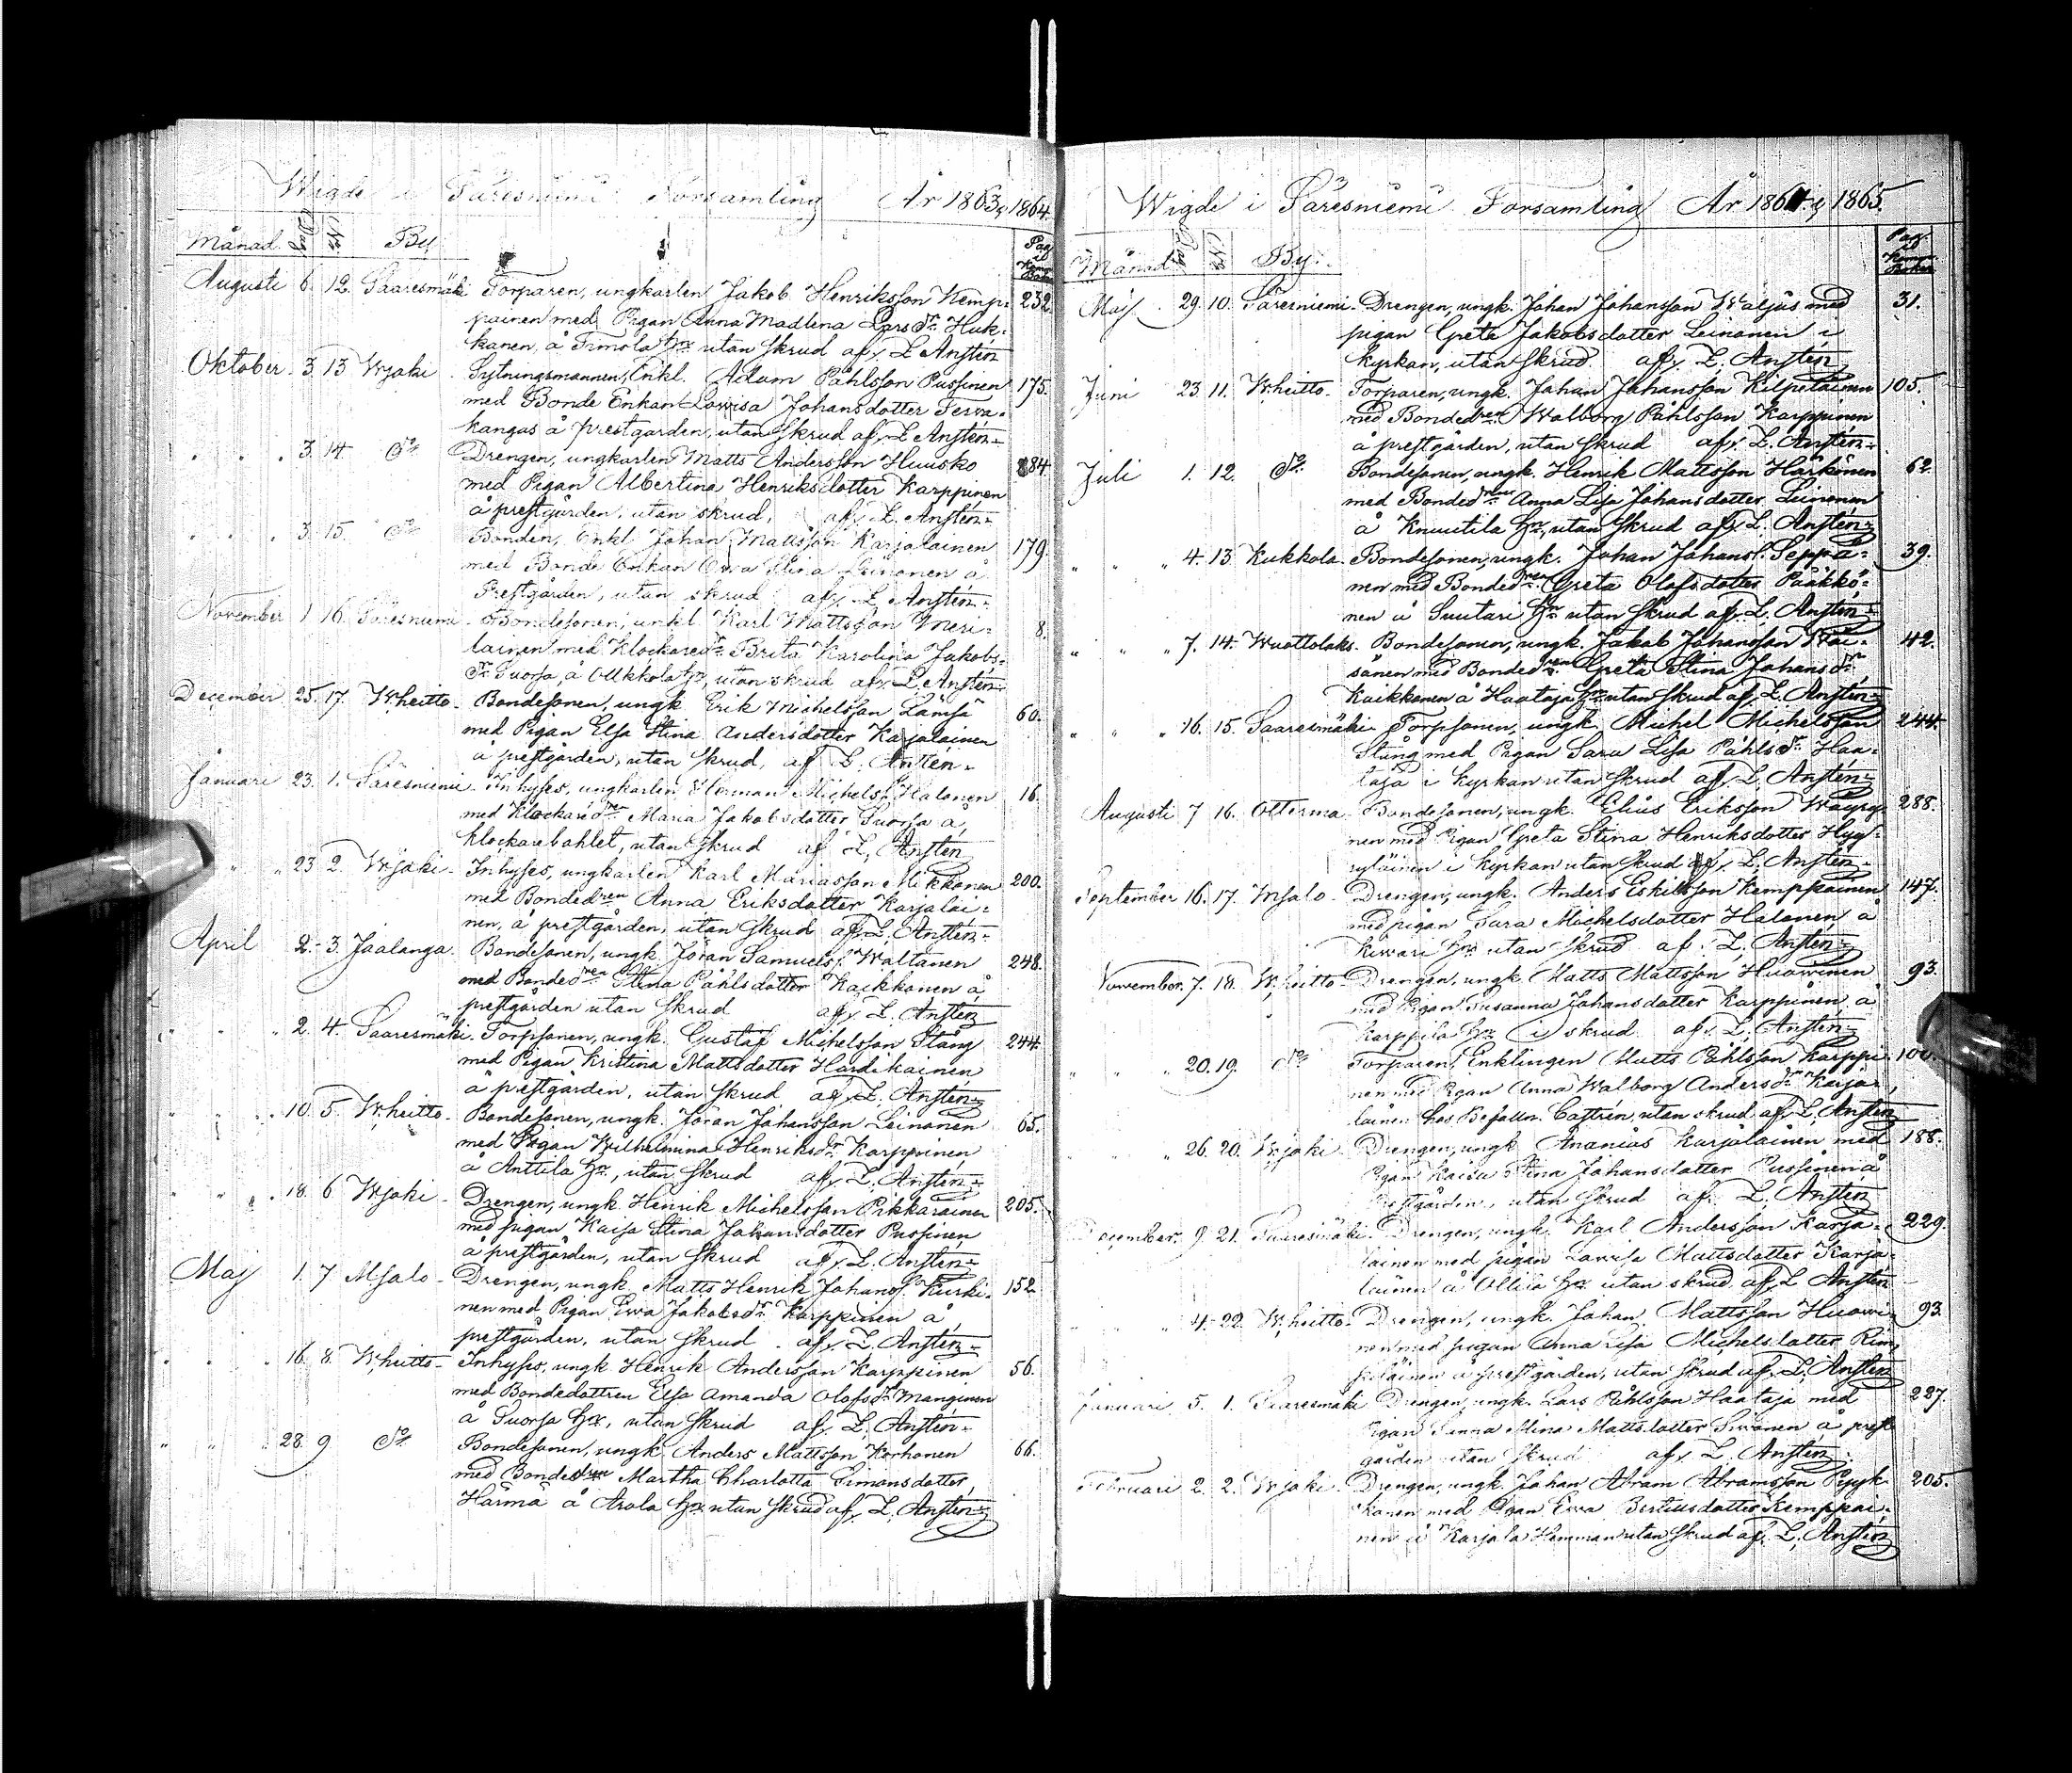 Wigde i Säresniemi Församling År 1863 & 1864.
Månad Dag No By Pag i Komm. Boken
Augusti 6. 12. Saaresmäki Torparen, ungkarlen Jakob Henriksson Kemp= 232.
painen med Pigan Anna Madlena Lars dr Huk=
kanen, å Timola Hn utan skrud af L. Anstén
Oktober 3. 13 Wrjoki Sytningsmannen, Enkl. Adam Påhlsson Pussinen 175.
med Bonde Enkan Lowisa Johansdotter Terwa=
kangas å prestgården, utan skrud af L. Anstén
" " 3. 14 Do Drengen, ungkarlen Matts Andersson Huusko 184
med Pigan Albertina Henriksdotter Karppinen
å prestgården, utan skrud, af L. Anstén
" " 3. 15. Do Bonden, Enkl. Johan Mattsson Karjalainen 179
med Bonde Enkan Ewa Stina Leinonen å
Prestgården, utan skrud af L. Anstén
November 1. 16. Säresniemi Bondesonen, unkl. Karl Mattsson Meri= 8.
lainen med Klockare dr Brita Karolina Jakobs=
dr Suorsa, å Ollikkola Hn, utan skrud af L. Anstén
December 25. 17. W:heitto Bondesonen, ungk Erik Michelsson Lämsä 60.
med Pigan Elsa Stina Andersdotter Karjalainen
å prestgården, utan skrud, af L. Anstén
Januari 23. 1. Säresniemi Inhyses, ungkarlen Herman Michelss. Halonen 16.
med Klockare dren Maria Jakobsdotter Suorsa å
klockarebohlet, utan skrud af L. Anstén
" " 23 2. Wrjoki Inhyses, ungkarlen Karl Mariasson Mikkonen 200.
med Bondedren Anna Eriksdotter Karjalai=
nen, å prestgården, utan skrud af L. Anstén
April 2. 3. Jaalanga Bondesonen, ungk. Jöran Samuelss. Waltanen 248.
med Bondedren Stina Påhlsdotter Kaikkonen å
prestgården utan skrud af L. Anstén
" " 2. 4. Saaresmäki Torpsonen, ungk. Gustaf Michelsson Stång 244.
med Pigan Kristina Mattsdotter Hardikainen
å prestgården, utan skrud af L. Anstén
" " 10. 5. W:heitto Bondesonen, ungk. Jöran Johansson Leinonen 65.
med Pigan Wilhelmina Henriksdr Karppinen
å Anttila Hn, utan skrud af L. Anstén
" " 18. 6 Wrjoki Drengen, ungk Henrik Michelsson Pikkarainen 205.
med pigan Kaisa Stina Johansdotter Pussinen
å prestgården, utan skrud af L. Anstén
Maj 1. 7 M:salo Drengen, ungk. Matts Henrik Johanss. Kurki= 152
nen med Pigan Ewa Jakobsdr Karppinen å
prestgården, utan skrud. af L. Anstén
" " 16. 8. W:heitto Inhyses, ungk. Henrik Andersson Karppinen 56.
med Bondedottren Elsa Amanda Olofsdr Manginen
å Suorsa Hn, utan skrud af L. Anstén
" " 28. 9 Do Bondesonen, ungk. Anders Mattsson Korhonen 66.
med Bondedren Martha Charlotta Simonsdotter
Härmä å Arola Hn utan skrud af L. Anstén
Wigde i Säresniemi Församling År 1864 & 1865.
Månad Dag No By. Pag i Komm. Boken
Maj 29. 10. Säresniemi Drengen, ungk. Johan Johansson Waljus med 31.
pigan Greta Jakobsdotter Leinonen i
kyrkan, utan skrud af L. Anstén
Juni 23. 11. W:heitto Torparen, ungk. Johan Johansson Kilpeläinen 105.
med Bondedren Walborg Påhlsson Karppinen
å prestgården, utan skrud af L. Anstén
Juli 1. 12. Do Bondesonen, ungk. Henrik Mattsson Härkönen 62.
med Bondedren Anna Lisa Johansdotter Leinonen
å Knuutila Hn, utan skrud af L. Anstén
" " 4. 13. Kukkola Bondesonen, ungk. Johan Johanss. Seppä= 39.
nen med Bondedren Greta Olofsdotter Pääkkö=
nen å Suutari Hn utan skrud af L. Anstén
" " 7. 14. Wuottolaks. Bondesonen, ungk. Jakob Johansson Wäi= 42.
sänen med Bondedren Greta Stina Johansdr
Kaikkonen å Haataja Hn utan skrud af L. Anstén
" " 16. 15. Saaresmäki Torpsonen, ungk. Michel Michelsson 244.
Stång med Pigan Sara Lisa Påhlsdr Haa=
taja i kyrkan utan skrud af L. Anstén
Augusti 7 16. Otterma Bondesonen, ungk. Elias Eriksson Wäyry= 288.
nen med Pigan Greta Stina Henriksdotter Hyy=
ryläinen i kyrkan utan skrud af L. Anstén
September 16. 17. M:salo Drengen, ungk. Anders Eskilsson Kemppainen 147.
med pigan Sara Michelsdotter Halonen å
Kiwari Hn utan skrud af L. Anstén
November 7. 18. W:heitto Drengen, ungk Matts Mattsson Huowinen 93.
med Pigan Susanna Johansdotter Karppinen å
Karppila Hn i skrud af L. Anstén
" " 20. 19. Do Torparen, Enklingen Matts Påhlsson Karppi= 100.
nen med Pigan Anna Walborg Andersdr Karja=
lainen hos Befallm. Castrén, utan skrud af L. Anstén
" " 26. 20. Wrjoki Drengen, ungk Ananias Karjalainen med 188.
Pigan Kaisa Stina Johansdotter Pussinen å
Prestgården, utan skrud af L. Anstén
December 9. 21. Saaresmäki Drengen, ungk. Karl Andersson Karja= 229.
lainen med pigan Lowisa Mattsdotter Karja=
lainen å Ollila Hn utan skrud af L. Anstén
" " 4. 22 W:heitto Drengen, ungk. Johan Mattsson Huowi= 93.
nen med pigan Anna Lisa Michelsdotter
å prestgården, utan skrud af L. Anstén
Januari 5. 1. Saaresmäki Drengen, ungk. Lars Påhlsson Haataja med 227.
Pigan Anna Stina Mattsdotter Siwonen å prest=
gården utan skrud af L. Anstén
Februari 2. 2. Wrjoki Drengen, ungk. Johan Abram Abramsson Pyyk= 205.
könen med Pigan Ewa Bertiusdotter Kemppai=
nen å Karjala Hemman utan skrud af L. Anstén